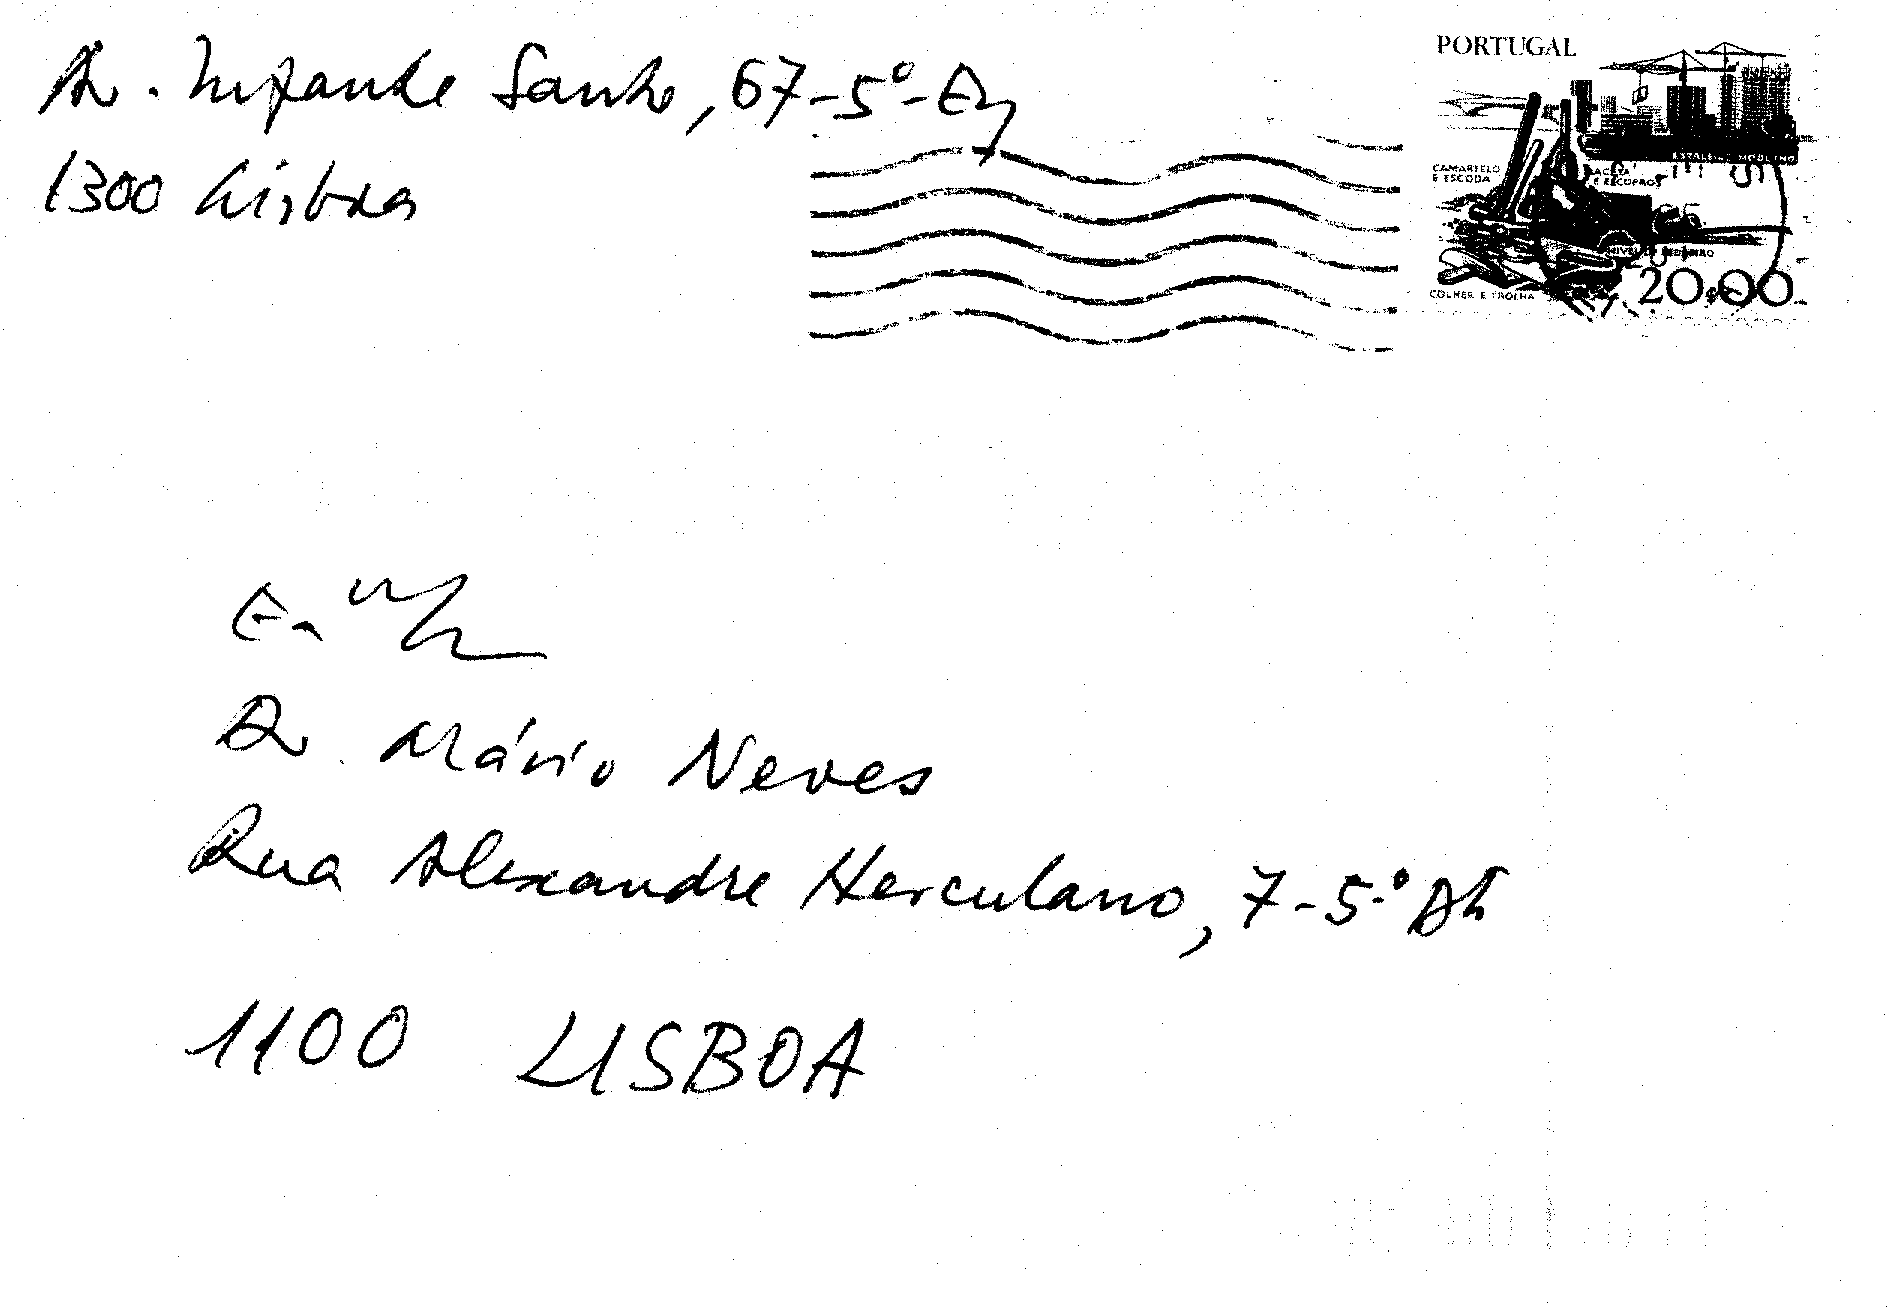 Av. Infante Santo, 67-5º-Eq
1300 Lisboa
PORTUGAL
CAMARTELO
E ESCODA
COLHER E TROLHA
20$00
Dr. Mário Neves
Rua Alexandre Herculano, 7-5.º Dt
1100 LISBOA